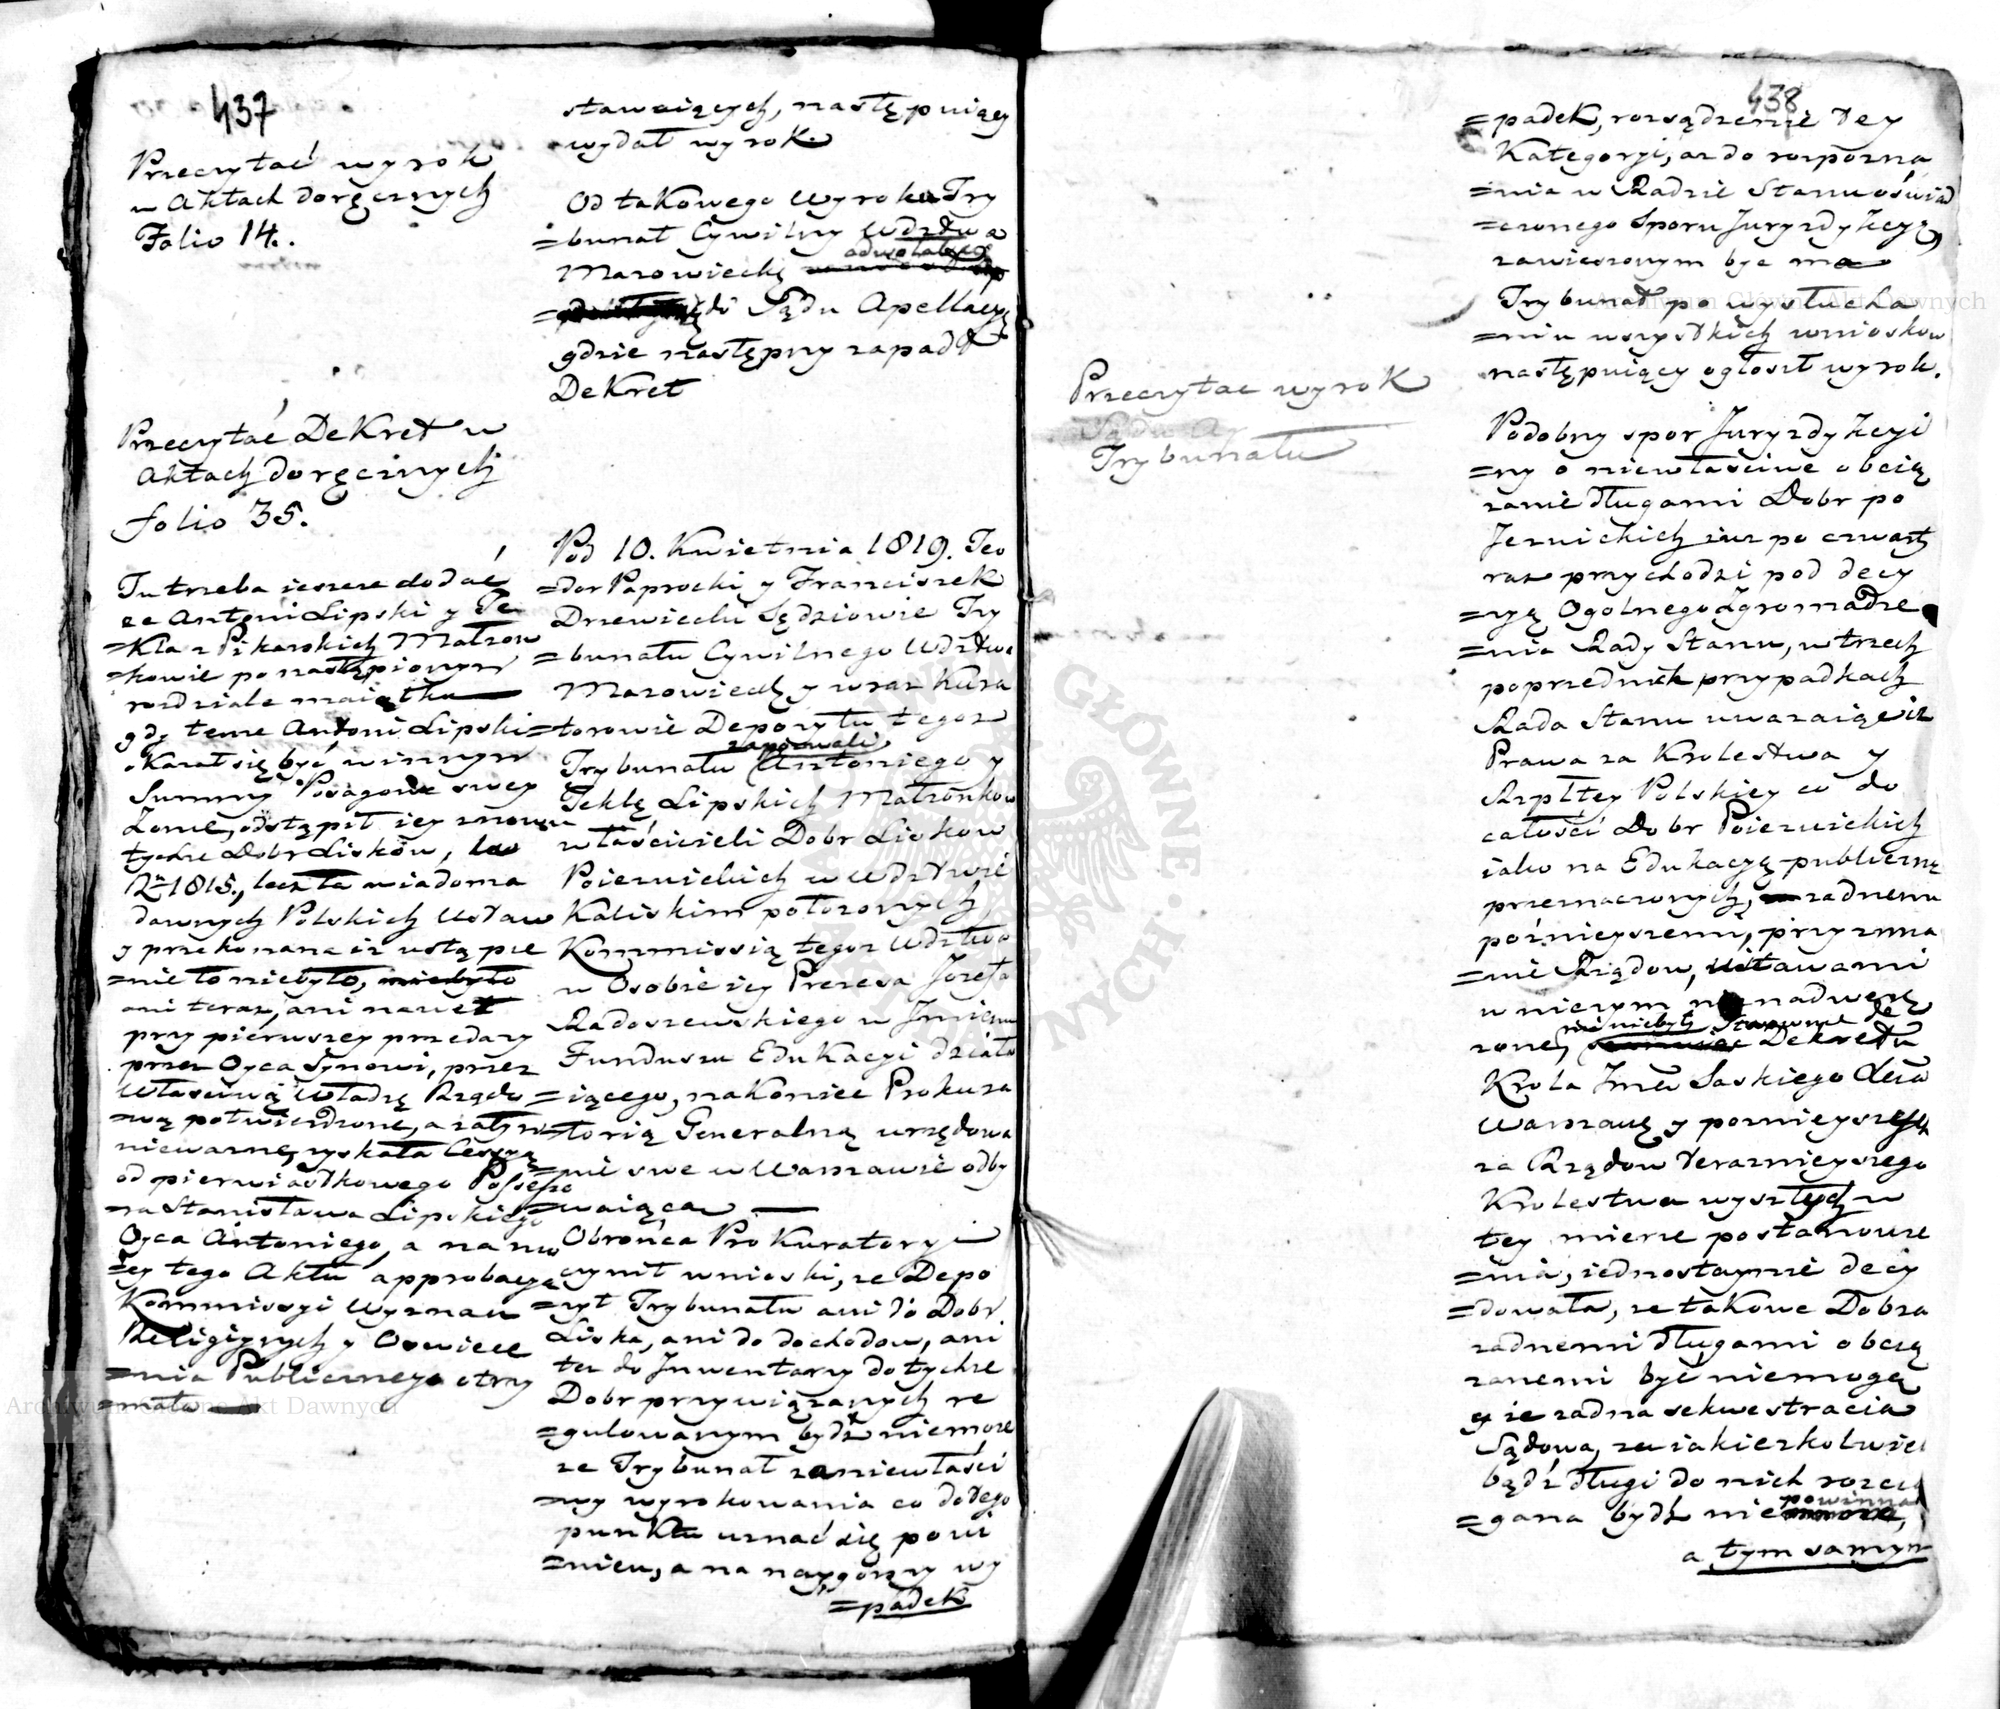 437
Przeczytać wyrok
w Aktach doręcznych
Folio 14.
Przeczytać Dekret w
Aktach doręcznych
folio 35.
Tu trzeba ieszcze dodać
ze Antoni Lipski y Te
=kla z Pikarskich Małżon
=kowie po nastąpionym
rozdziale maiątku
gdy tenze Antoni Lipski
okazał się być winnym
Summy Posagowe swey
Zonie, odstąpił iey znowu
tychze Dobr Lisków,
1815., lecz ta wiadoma
dawnych Polskich Ustaw
y przekonana iż ustąpie
=nie to niebyło, niebyło
ani teraz, ani nawet
przy pierwszey przedazy
przez Oyca Synowi, przez
Właściwą Władzę Rządo
=wą potwierdzone, a zatym
niewazne, zyskała Cessyą
od pierwiastkowego Possesso
=ra Stanisława Lipskiego
Oyca Antoniego, a na mo
=cy tego Aktu approbacyą
Kommissyi Wyznań
Religiynych y Oswiece
=nia Publicznego otrzy
=mała
stawaiących, następuiący
wydał wyrok
Od takowego Wyroku Try
=bunał Cywilny Wdztwa
Mazowieckę odwołał się
do Sądu Apellacyi
gdzie następny zapadł
Dekret
Pod 10. Kwietnia 1819. Teo
=dor Paprocki y Franciszek
Drzewiecki Sędziowie Try
=bunału Cywilnego Wdztwa
Mazowieck y wraz Kura
=torowie Depozytu tegoz
zapozwali
Trybunału Antoniego y
Teklę Lipskich Małzonkow
właścicieli Dobr Liskow
Poiezuickich w Wdztwie
Kaliskim położonych,
Kommissią tegoz Wdztwa
w Osobie iey Prezesa Józefa
Radoszewskiego w Imieniu
Funduszu Edukacyi działa
=iącego, nakoniec Prokura
=torią Generalną urzędowa
=nie swe w Warszawie odby
=waiąca
Obrońca Prokuratoryi
czynił wnioski, ze Depo
=zyt Trybunału ani do Dobr
Liska, ani do dochodow, ani
tez do Inwentarzy do tychze
Dobr przywiązanych re
=gulowanym bydź niemoze
ze Trybunał za niewłaści
=wy wyrokowania co do tego
punktu uznać się powi
=nien, a na naygorszy wy
=padek
438
=padek, rozsądzenie tey
Kategoryi, az do rozpozna
=nia w Radzie Stanu oświad
=czonego Sporu Juryzdykcyi,
zawieszonym byc ma
Trybunał po wysłucha
=niu wszystkich wnioskow
następuiący ogłosił wyrok.
Przeczytac wyrok
Trybunału
Podobny spor Juryzdykcyi
=ny o niewłaściwe obcią
zanie długami Dobr po
Jezuickich iuz po czwarty
raz przychodzi pod decy
=zyę Ogolnego Zgromadze
=nia Rady Stanu, w trzech
poprzednich przypadkach
Rada Stanu uwazaiąc iz
Prawa za Krolestwa y
Rzpltey Polskiey co do
całości Dobr Poiezuickich
iako na Edukacyą publiczną
przeznaczonych, zadnemi
póznieyszemi, przyzna
=nie Rządow, Ustawami
w niczym nadwerę
nie niebyły Stanowcze de
zone, Dekretu
Krola Jmci Saskiego Xcia
Warszaws y poznieyszych
za Rządow terazniyszego
Krolestwa wyszłych w
tey mierze postanowie
=nia, iednostaynie decy
=dowała, ze takowe Dobra
zadnemi długami obcią
zanemi być niemogą
y ze zadna sekwestracia
Sądowa, za iakiezkolwiek
bądź długi do nich rozcią
powinna
=gana bydź nie
a tym samym